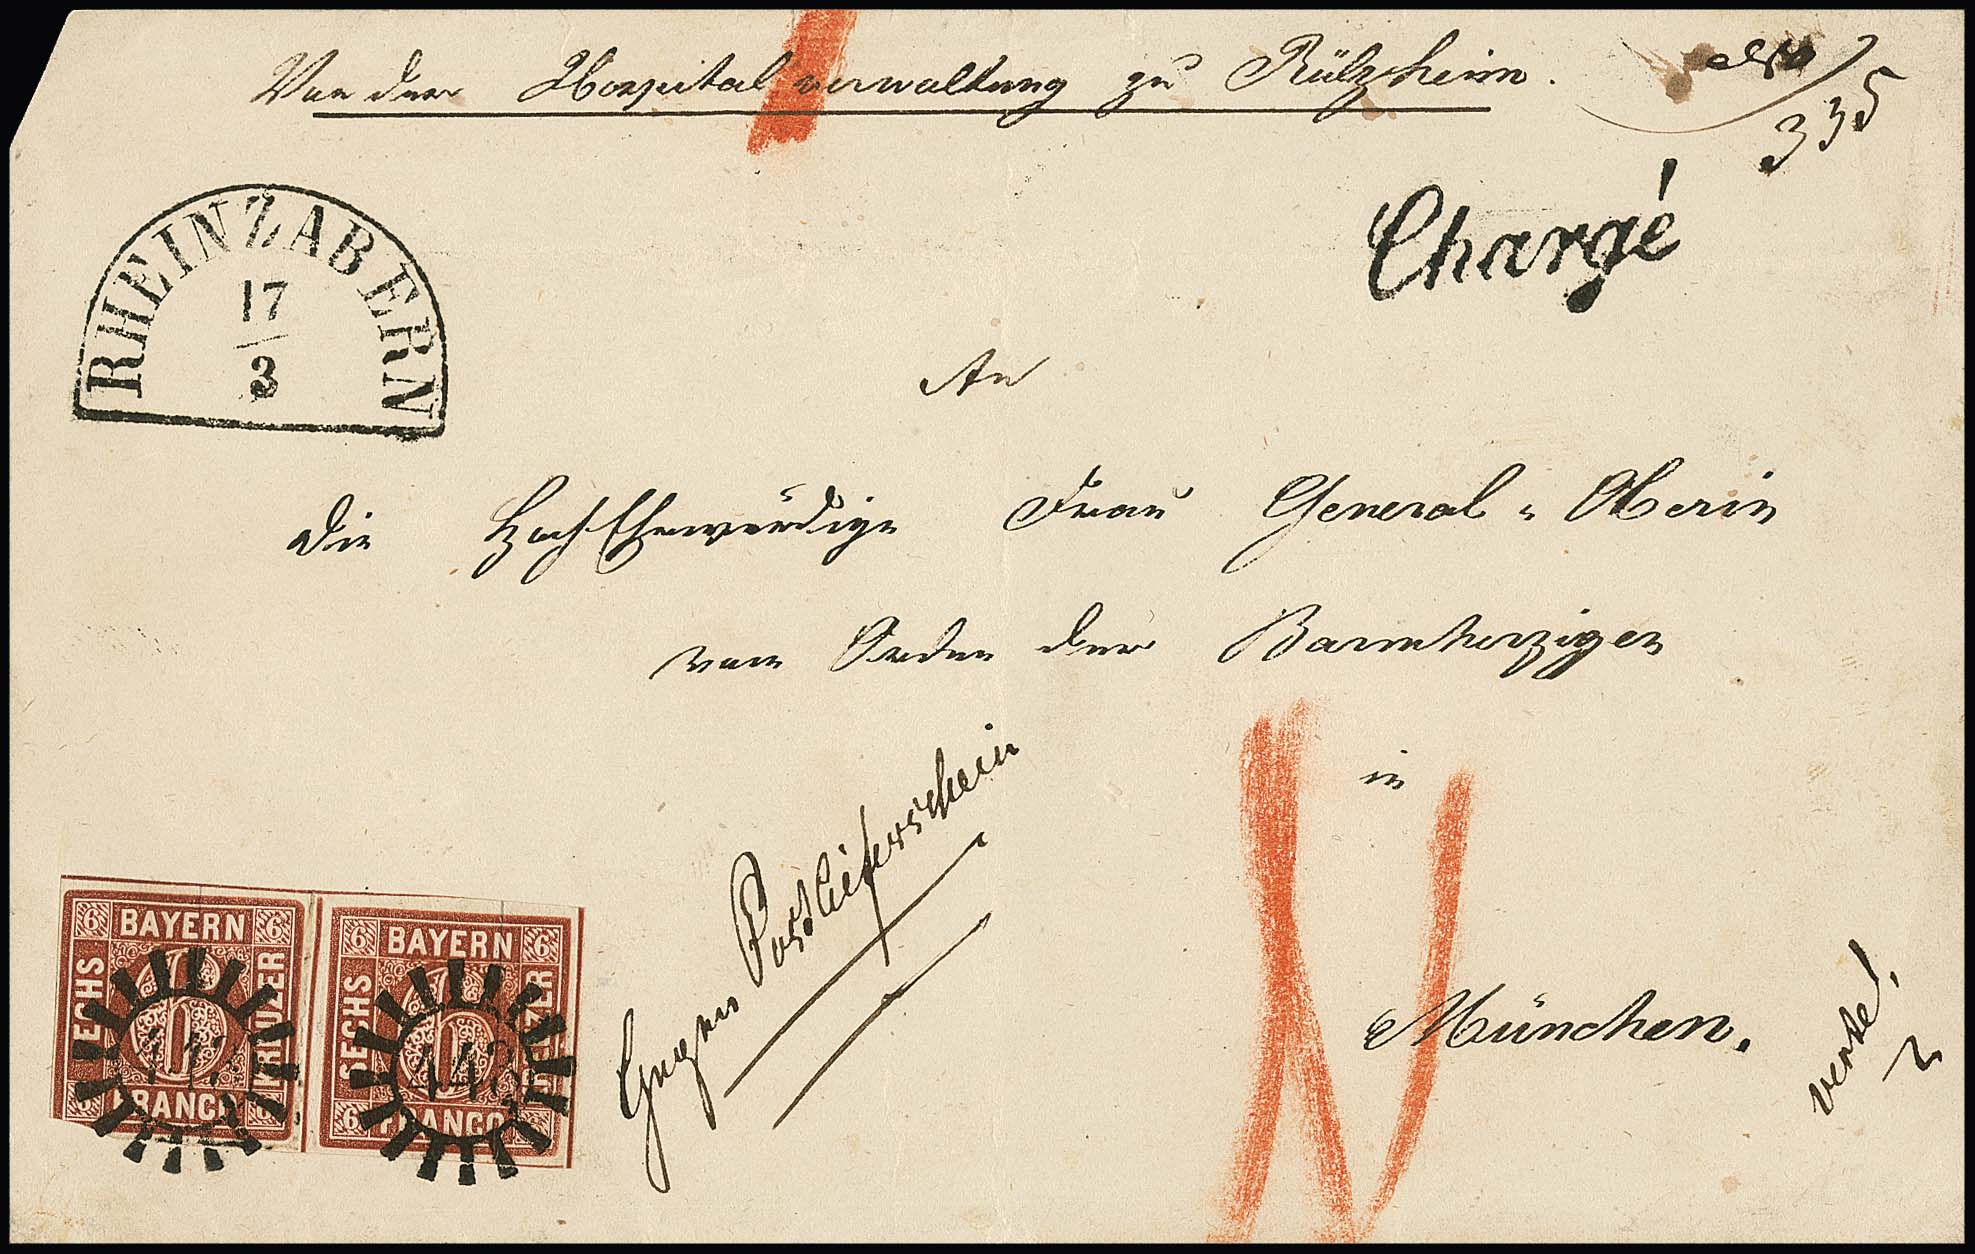 Von der Hospitalverwaltung zu Rülzheim.
335
Chargé
RHEINZABERN
17
3
An
die HochEhrwürdige Frau General-Oberin
vom Orden der Barmherzigen
in
München.
Gegen Postlieferschein
verte!
6 BAYERN 6
SECHS 6 KREUZER
6 FRANCO 6
6 BAYERN 6
SECHS 6 KREUZER
6 FRANCO 6
443
443